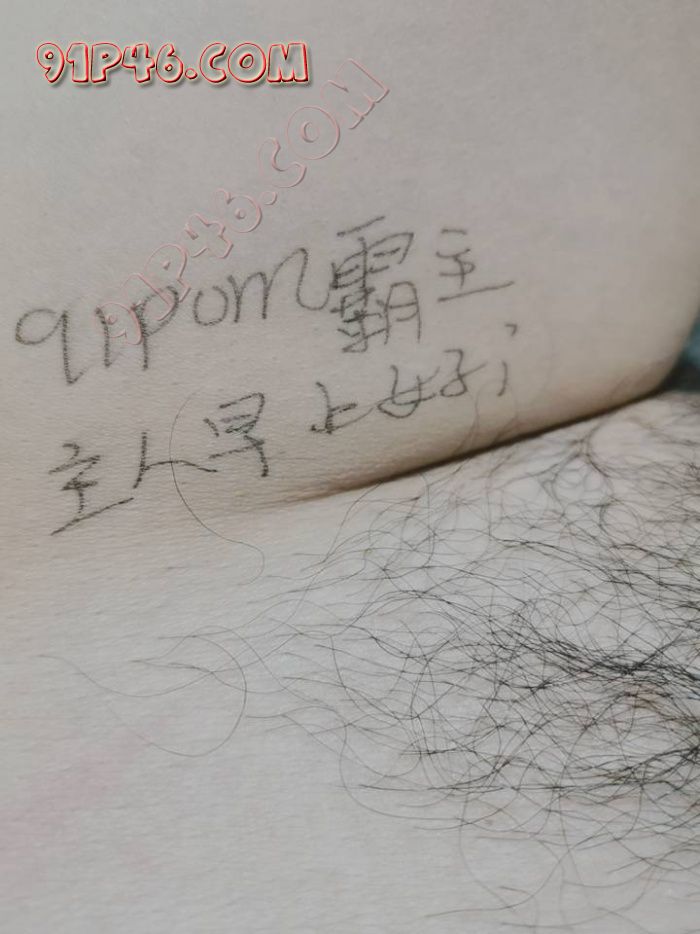 91P46.COM
91P46.COM
91pom霸主
主人早上好;